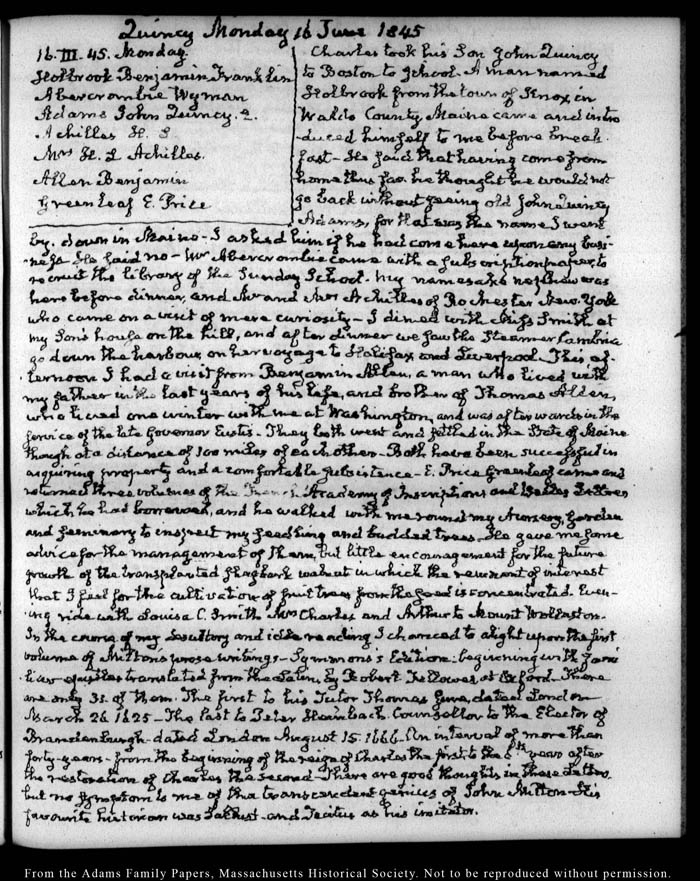 Quincy Monday 16 June 1845
16. III. 45. Monday.
Holbrook Benjamin Franklin
Abercrombie Wyman
Adams John Quincy. 2.
Achilles H. L
Mrs H. L Achilles.
Allen Benjamin
Greenleaf E. Price
Charles took his Son John Quincy
to Boston to School. A man named
Holbrook from the town of Knox, in
Waldo County Maine came and intro
duced himself to me before break-
fast - He said that having come from
home thus far he thought he would not
go back without seeing old John Quincy
Adams, for that was the name I went
by, down in Maine - I asked him if he had come here upon any busi-
ness. He said no - Mr Abercrombie came with a subscription paper, to
recruit the library of the Sunday School. My namesake nephew was
here before dinner, and Mr and Mrs Achilles of Rochester New York
who came on a visit of mere curiosity - I dined with Miss Smith at
my Son's house on the hill, and after dinner we saw the Steamer Cambria
go down the harbour, on her voyage to Halifax and Liverpool. This af-
ternoon I had a visit from Benjamin Allen, a man who lived with
my father in the last years of his life, and brother of Thomas Alden,
who lived one winter with me at Washington, and was afterwards in the
service of the late Governor Eustis - They both went and settled in the State of Maine
though at a distance of 100 miles of each other - Both have been successful in
acquiring property and a comfortable subsistence - E. Price Greenleaf came and
returned three volumes of the French Academy of Inscriptions and Belles Lettres
which he had borrowed, and he walked with me round my Nursery, Garden
and Seminary to inspect my seedling and budded trees. He gave me some
advice for the management of them, but little encouragement for the future
growth of the transplanted shagbark walnut in which the remnant of interest
that I feel for the cultivation of fruit trees from the seed is concentrated. Even-
ing ride with Louisa C. Smith Mrs Charles and Arthur to Mount Wollaston.
In the course of my desultory and idle reading, I chanced to alight upon the first
volume of Milton's prose writings - Symmons's Edition: beginning with fami
liar epistles translated from the Latin, by Robert Fellowes of Oxford. There
are only 31 of them. The first to his Tutor Thomas Jure, dated London
March 26 1625 - The last to Peter Heimbach, Counsellor to the Elector of
Brandenburgh - dated London August 15. 1666. An interval of more than
forty-years - from the beginning of the reign of Charles the first to the 6th year after
the restoration of Charles the Second - There are good thoughts in these Letters
but no symptom to me of the transcendent genius of John Milton - His
favourite historian was Sallust - and Tacitus as his imitator.
From the Adams Family Papers, Massachusetts Historical Society. Not to be reproduced without permission.